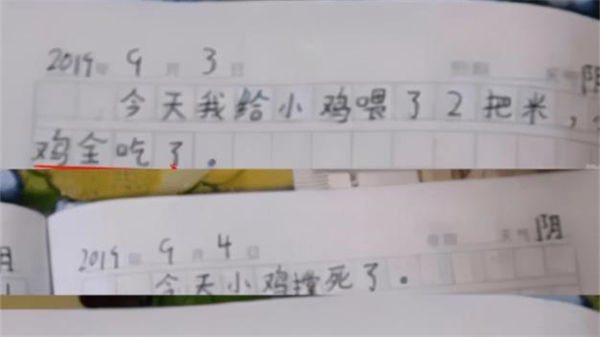 2019年 9月 3日 星期 天气 阴
今天我给小鸡喂了2把米，
鸡全吃了。
2019年 9月 4日 星期 天气 阴
今天小鸡撞死了。